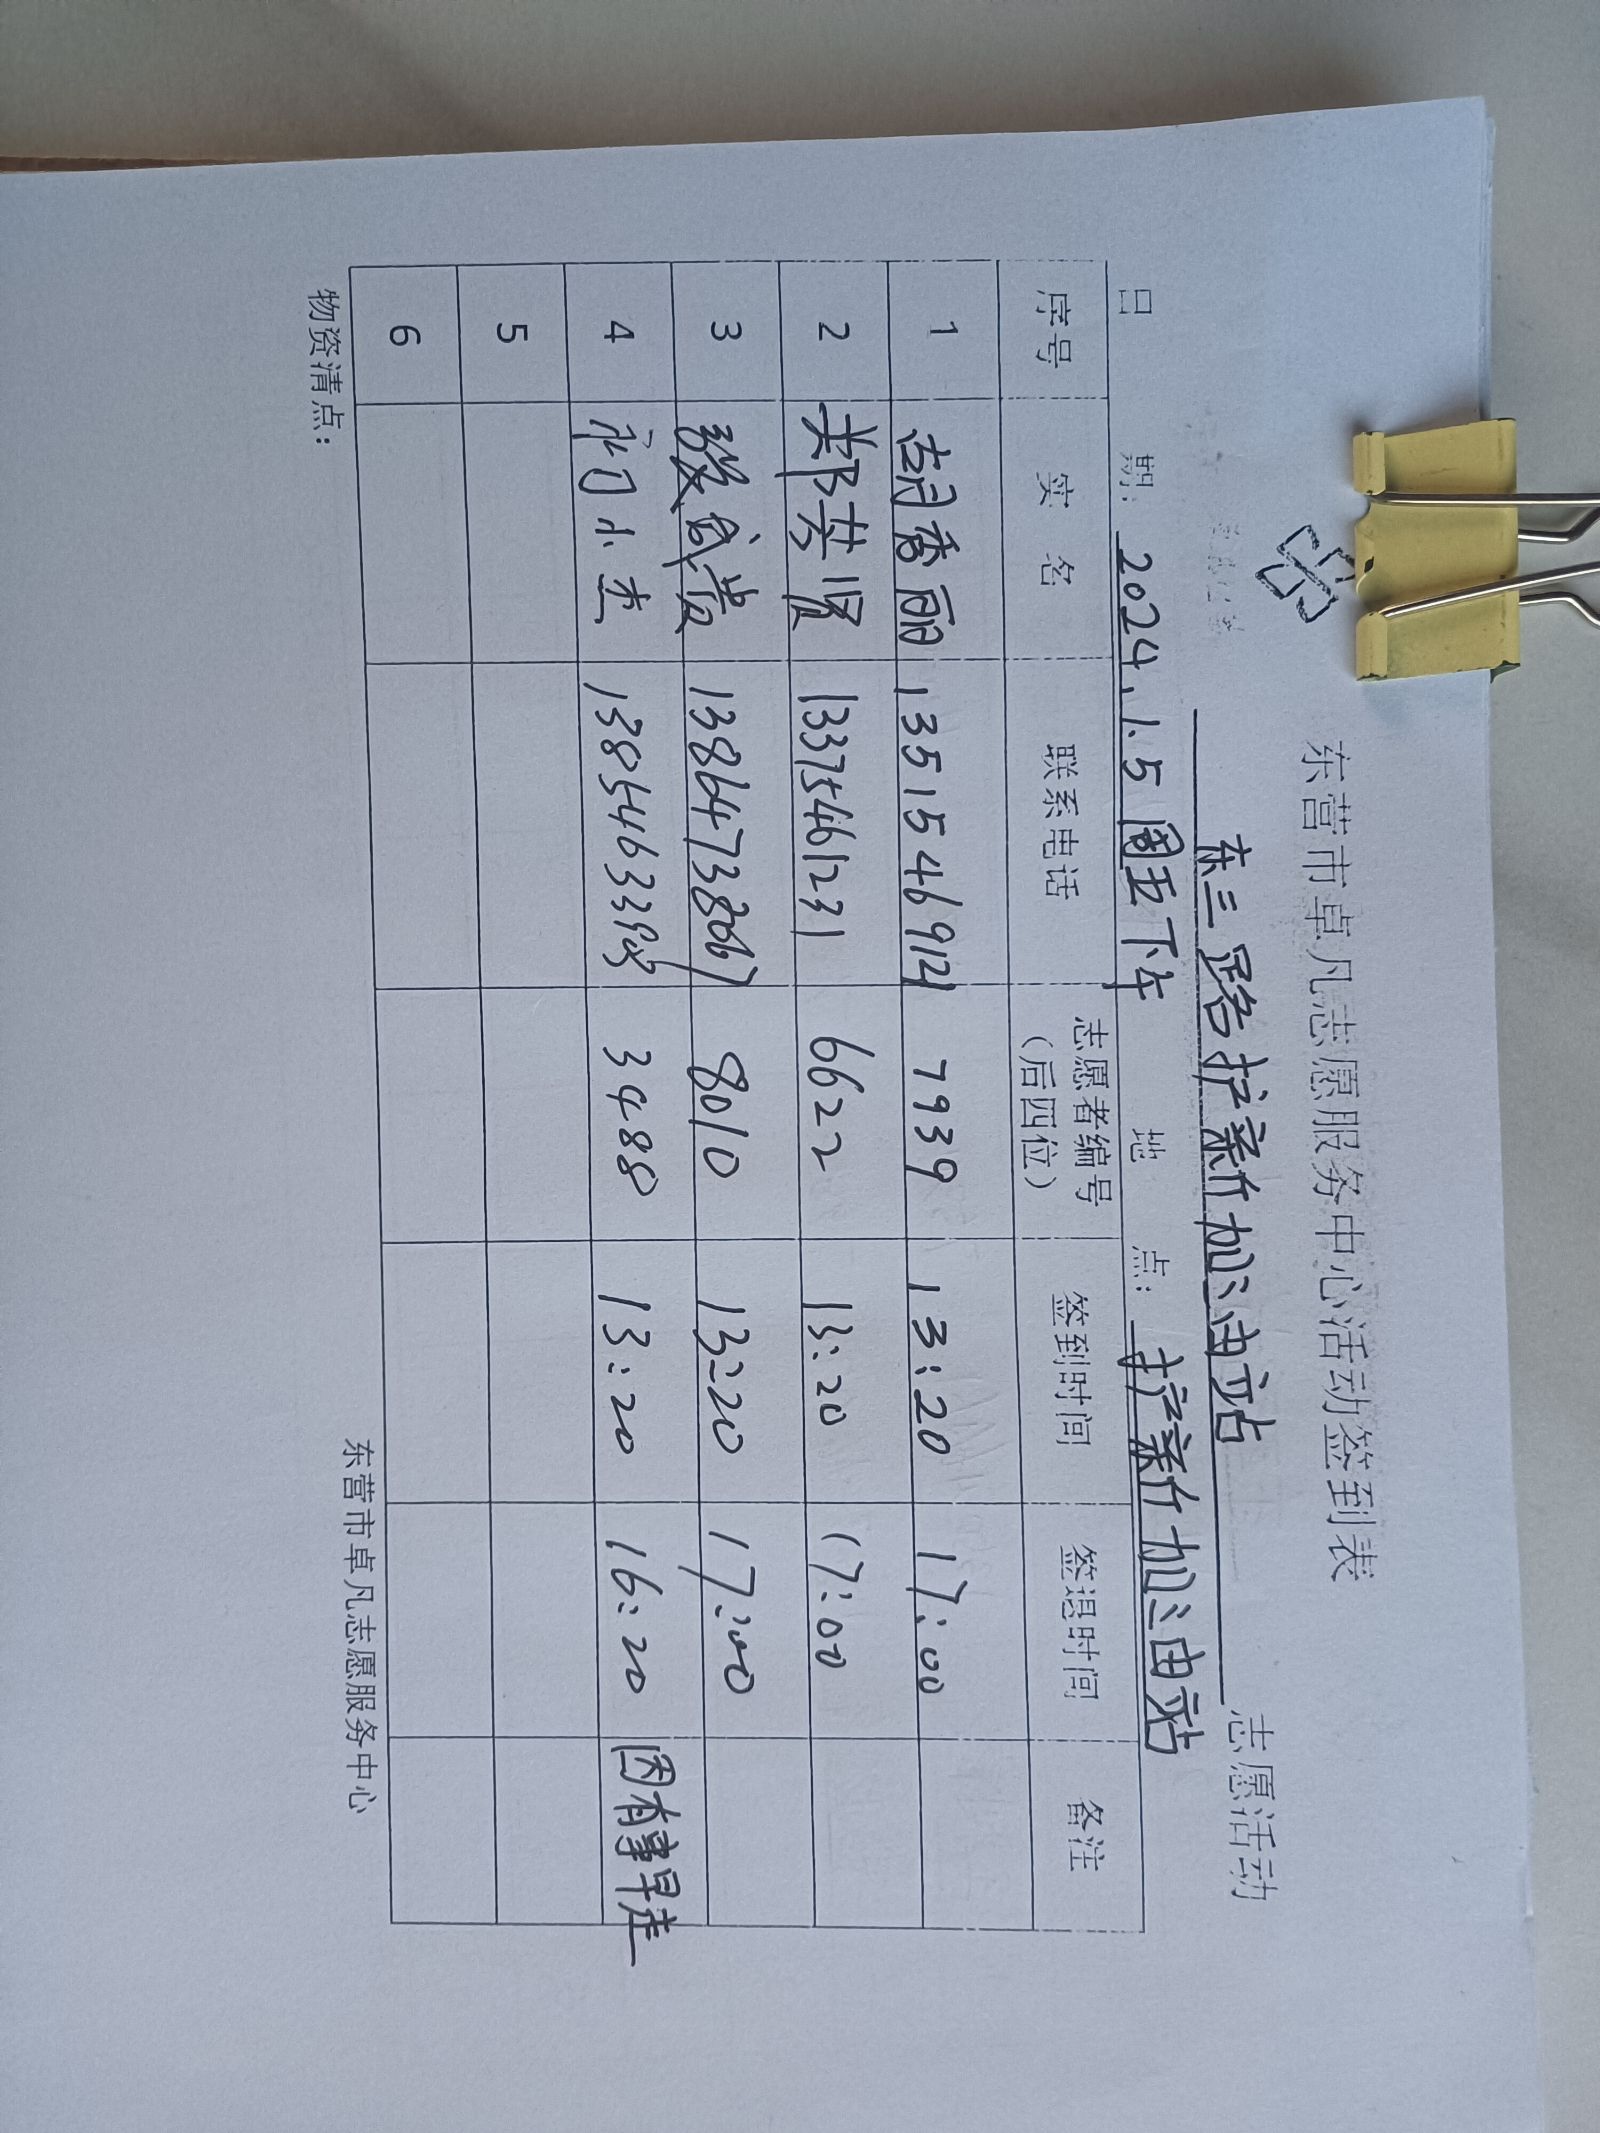 东营市卓凡志愿服务中心活动签到表
东三路护新加油站 志愿活动
日 期: 2024.1.5 周五下午 地 点: 护新加油站
序号 实 名 联系电话 志愿者编号(后四位) 签到时间 签退时间 备注
1 胡秀丽 13515469121 7939 13:20 17:00
2 郑芸贤 13375461231 6622 13:20 17:00
3 8010 13:20 17:00
4 小杰 3488 13:20 16:20 因有事早走
5
6
物资清点:
东营市卓凡志愿服务中心